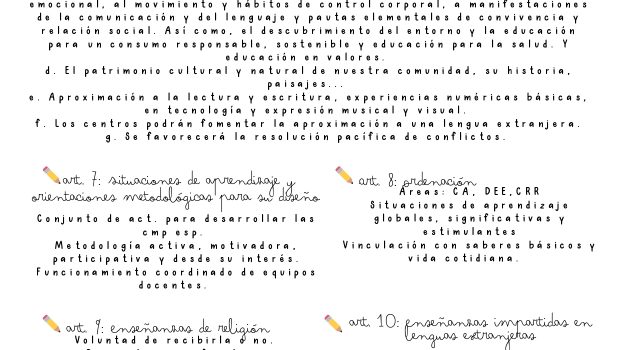 emocional, al movimiento y hábitos de control corporal, a manifestaciones
de la comunicación y del lenguaje y pautas elementales de convivencia y
relación social. Así como, el descubrimiento del entorno y la educación
para un consumo responsable, sostenible y educación para la salud. Y
educación en valores.
d. El patrimonio cultural y natural de nuestra comunidad, su historia,
paisajes...
e. Aproximación a la lectura y escritura, experiencias numéricas básicas,
en tecnología y expresión musical y visual.
f. Los centros podrán fomentar la aproximación a una lengua extranjera.
g. Se favorecerá la resolución pacífica de conflictos.
art. 7: situaciones de aprendizaje y
orientaciones metodológicas para su diseño
Conjunto de act. para desarrollar las
cmp esp.
Metodología activa, motivadora,
participativa y desde su interés.
Funcionamiento coordinado de equipos
docentes.
art. 8: ordenación
Áreas: CA, DEE,CRR
Situaciones de aprendizaje
globales, significativas y
estimulantes
Vinculación con saberes básicos y
vida cotidiana.
art. 9: enseñanzas de religión
Voluntad de recibirla o no.
art. 10: enseñanzas impartidas en
lenguas extranjeras